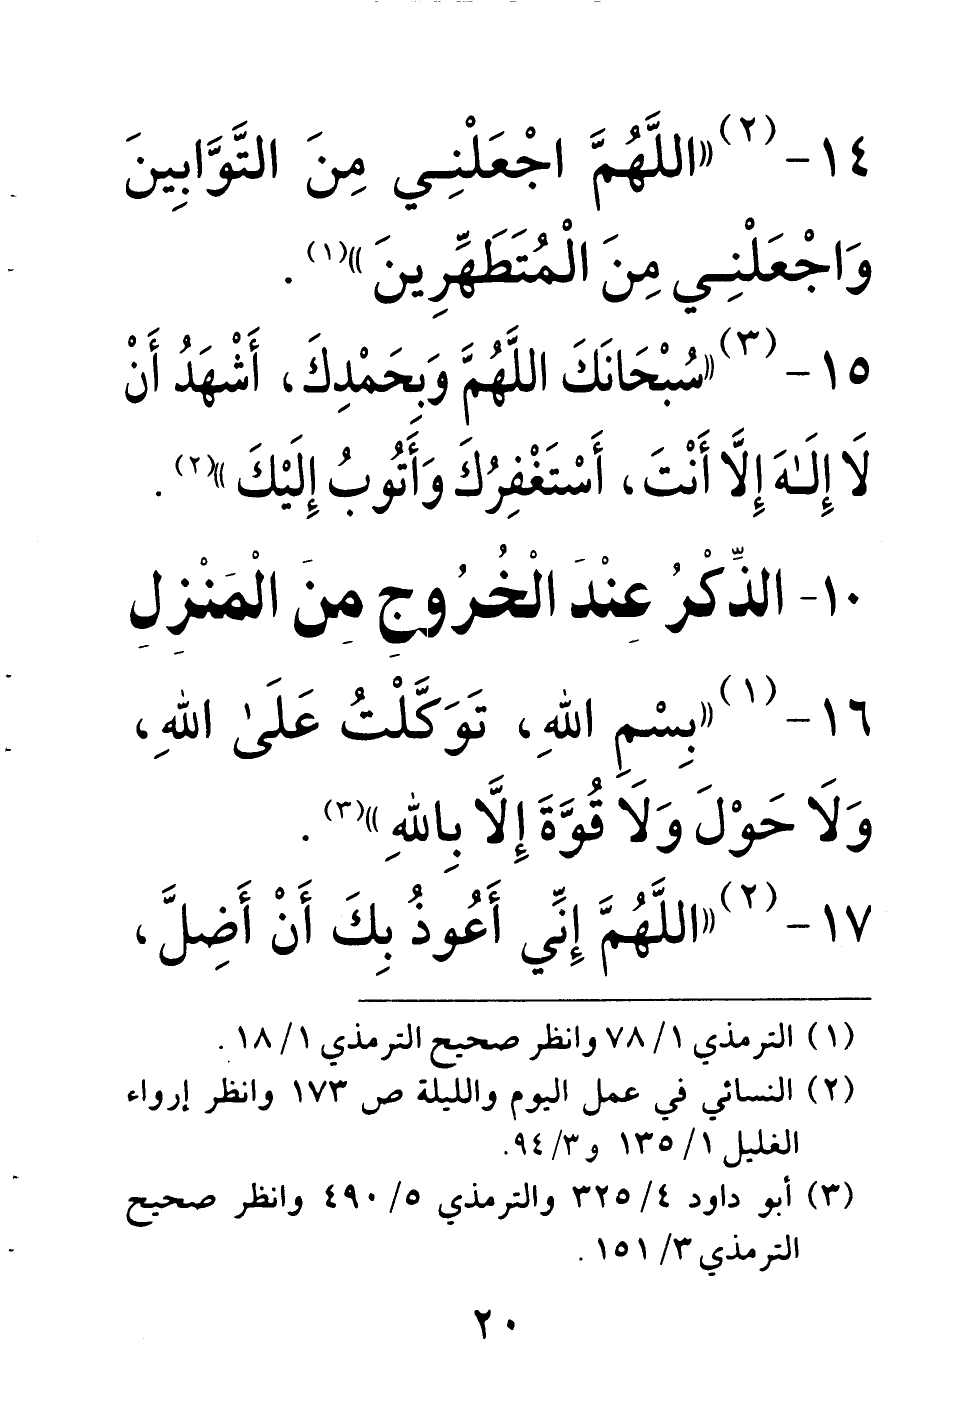 ١٤-(٢)«اللَّهُمَّ اجْعَلْنِي مِنَ التَّوَّابِينَ
وَاجْعَلْنِي مِنَ الْمُتَطَهِّرِينَ»(١).
١٥-(٣)«سُبْحَانَكَ اللَّهُمَّ وَبِحَمْدِكَ، أَشْهَدُ أَنْ
لَا إِلَـٰهَ إِلَّا أَنْتَ، أَسْتَغْفِرُكَ وَأَتُوبُ إِلَيْكَ»(٢).
١٠- الذِّكْرُ عِنْدَ الْخُرُوجِ مِنَ الْمَنْزِلِ
١٦-(١)«بِسْمِ اللهِ، تَوَكَّلْتُ عَلَىٰ اللهِ،
وَلَا حَوْلَ وَلَا قُوَّةَ إِلَّا بِاللهِ»(٣).
١٧-(٢)«اللَّهُمَّ إِنِّي أَعُوذُ بِكَ أَنْ أَضِلَّ،
(١) الترمذي ١/ ٧٨ وانظر صحيح الترمذي ١/ ١٨.
(٢) النسائي في عمل اليوم والليلة ص ١٧٣ وانظر إرواء
الغليل ١/ ١٣٥ و٣/ ٩٤.
(٣) أبو داود ٤/ ٣٢٥ والترمذي ٥/ ٤٩٠ وانظر صحيح
الترمذي ٣/ ١٥١.
٢٠